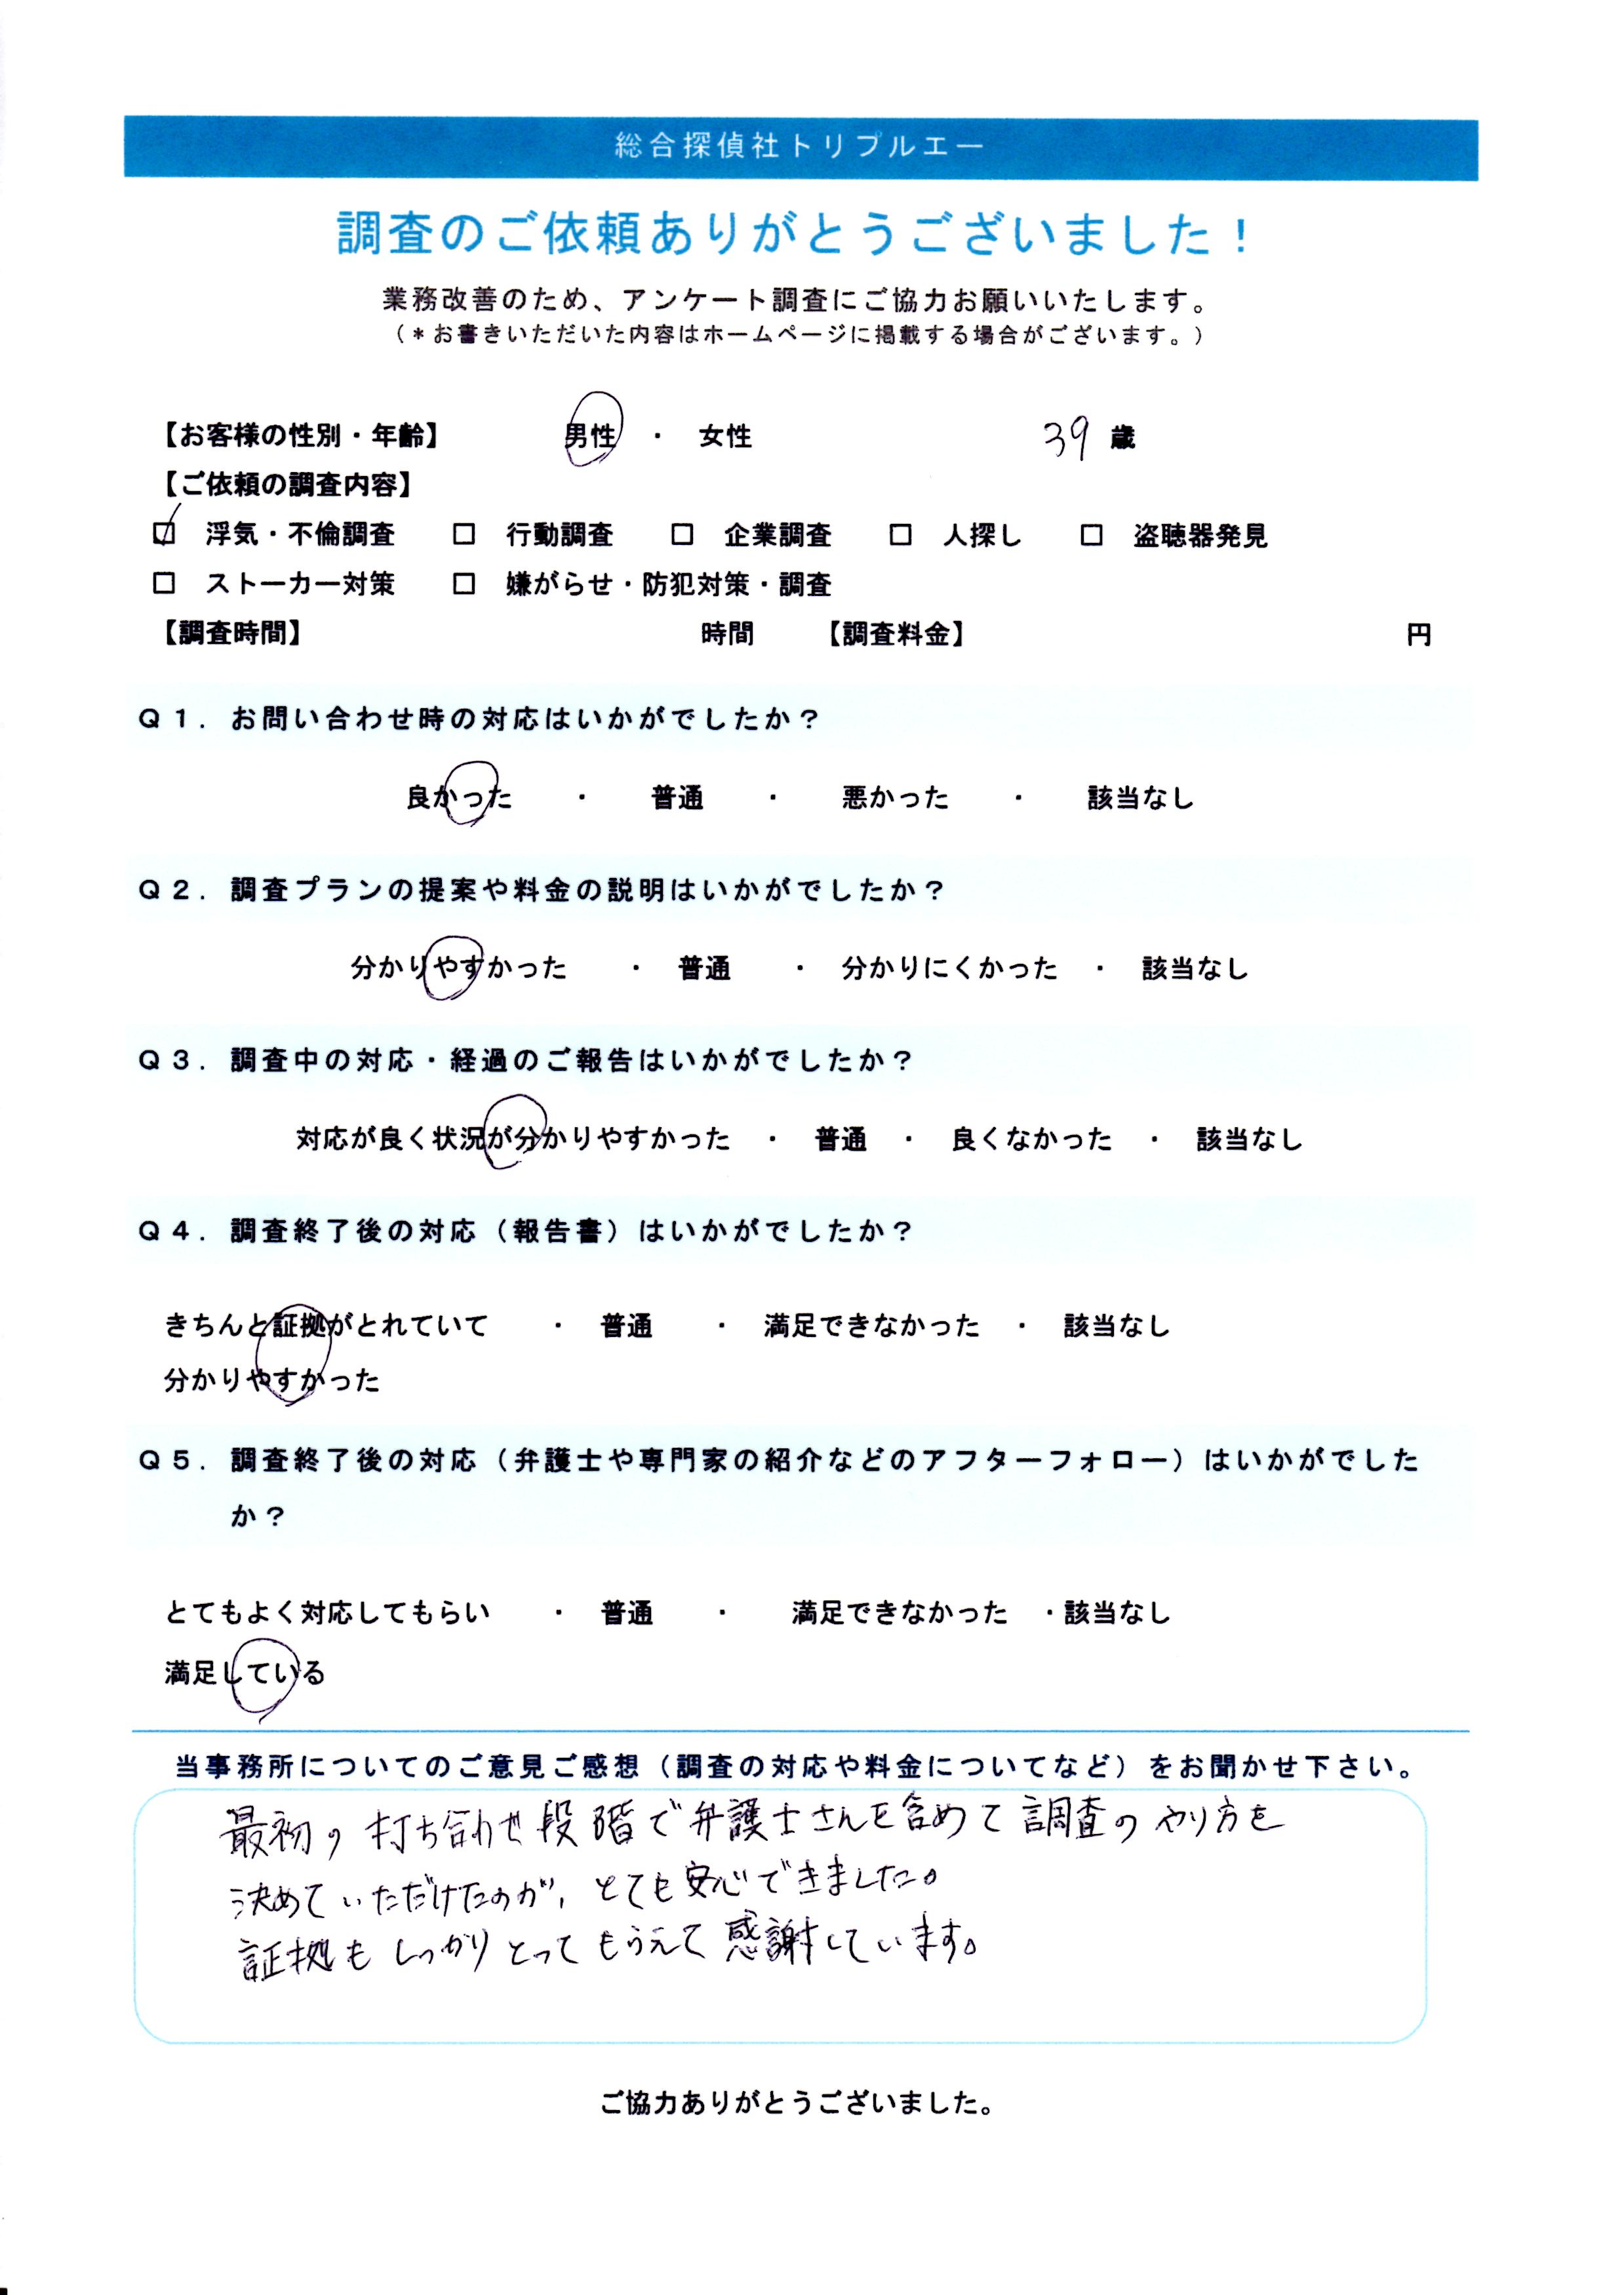 総合探偵社トリプルエー
調査のご依頼ありがとうございました！
業務改善のため、アンケート調査にご協力お願いいたします。
（＊お書きいただいた内容はホームページに掲載する場合がございます。）
【お客様の性別・年齢】 男性 ・ 女性 39 歳
【ご依頼の調査内容】
☑ 浮気・不倫調査 □ 行動調査 □ 企業調査 □ 人探し □ 盗聴器発見
□ ストーカー対策 □ 嫌がらせ・防犯対策・調査
【調査時間】 時間 【調査料金】 円
Ｑ１．お問い合わせ時の対応はいかがでしたか？
良かった ・ 普通 ・ 悪かった ・ 該当なし
Ｑ２．調査プランの提案や料金の説明はいかがでしたか？
分かりやすかった ・ 普通 ・ 分かりにくかった ・ 該当なし
Ｑ３．調査中の対応・経過のご報告はいかがでしたか？
対応が良く状況が分かりやすかった ・ 普通 ・ 良くなかった ・ 該当なし
Ｑ４．調査終了後の対応（報告書）はいかがでしたか？
きちんと証拠がとれていて ・ 普通 ・ 満足できなかった ・ 該当なし
分かりやすかった
Ｑ５．調査終了後の対応（弁護士や専門家の紹介などのアフターフォロー）はいかがでした
か？
とてもよく対応してもらい ・ 普通 ・ 満足できなかった ・該当なし
満足している
当事務所についてのご意見ご感想（調査の対応や料金についてなど）をお聞かせ下さい。
最初の打ち合わせ段階で弁護士さんを含めて調査のやり方を
決めていただけたのが、とても安心できました。
証拠もしっかりとってもらえて感謝しています。
ご協力ありがとうございました。